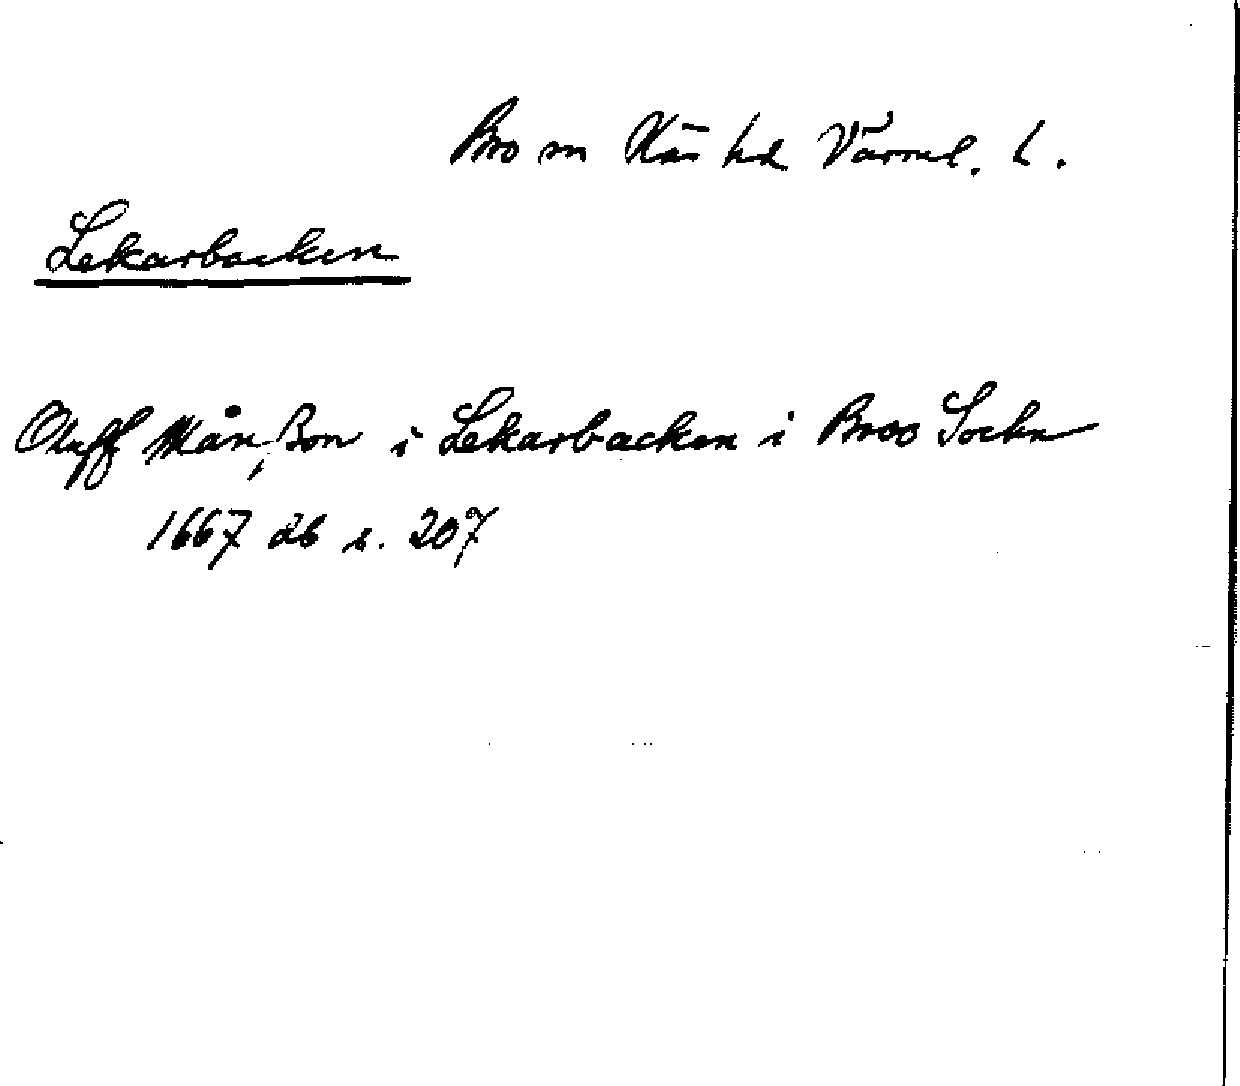 Bro sn Näs hd Värml. l.
Lekarbacken
Oluff Månßon i Lekarbacken i Broo Sockn
1667 db s. 207